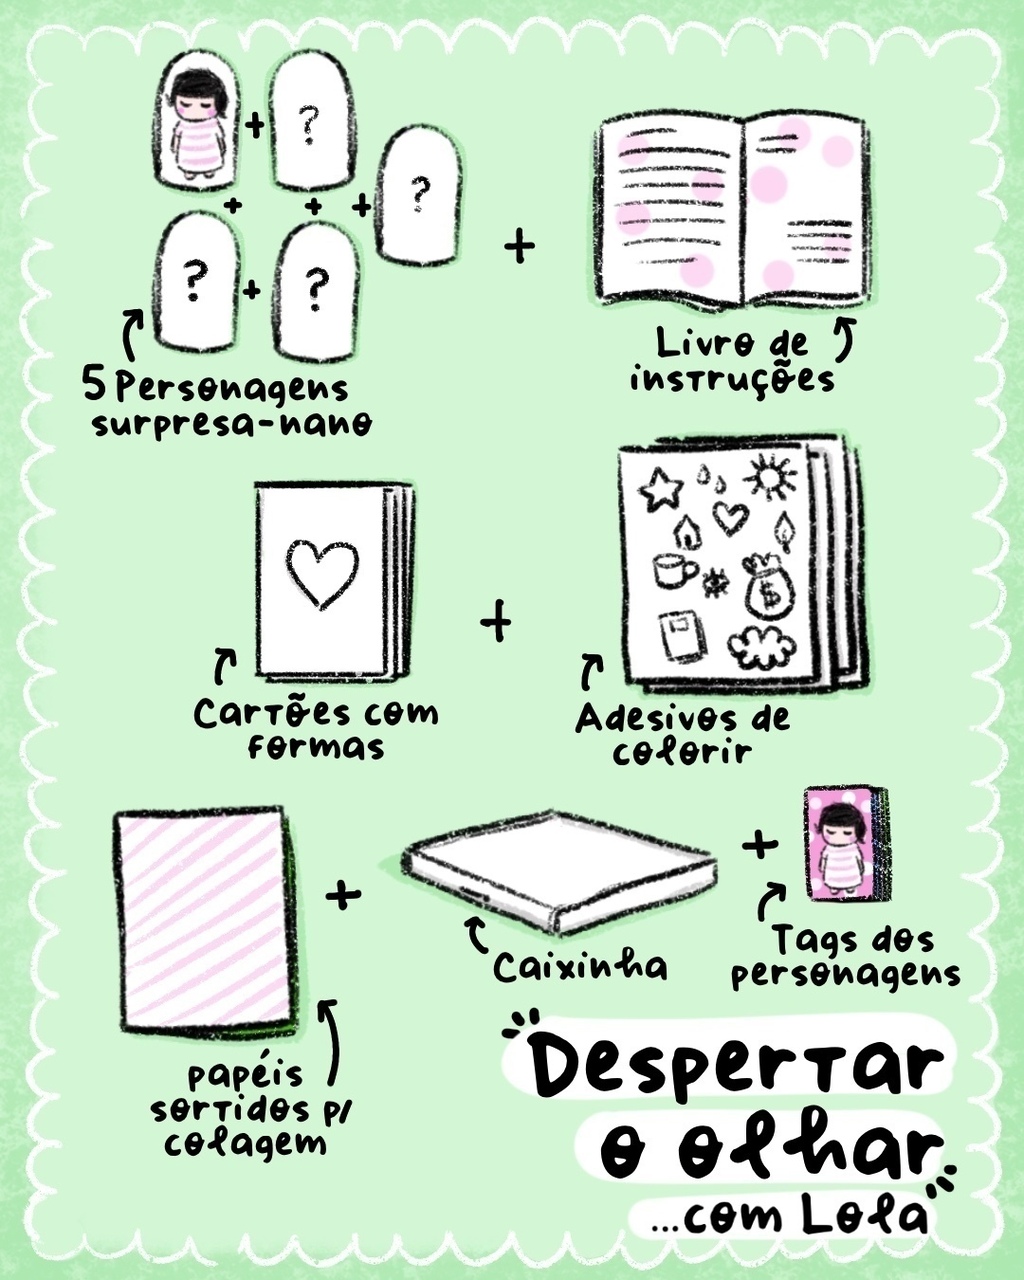 + ?
+ + + ?
? + ?
+
5 Personagens
surpresa-nano
Livro de
instruções
+
$
Cartões com
formas
Adesivos de
colorir
+
+
Caixinha
Tags dos
personagens
papéis
sortidos p/
colagem
Despertar
o olhar
...com Lola